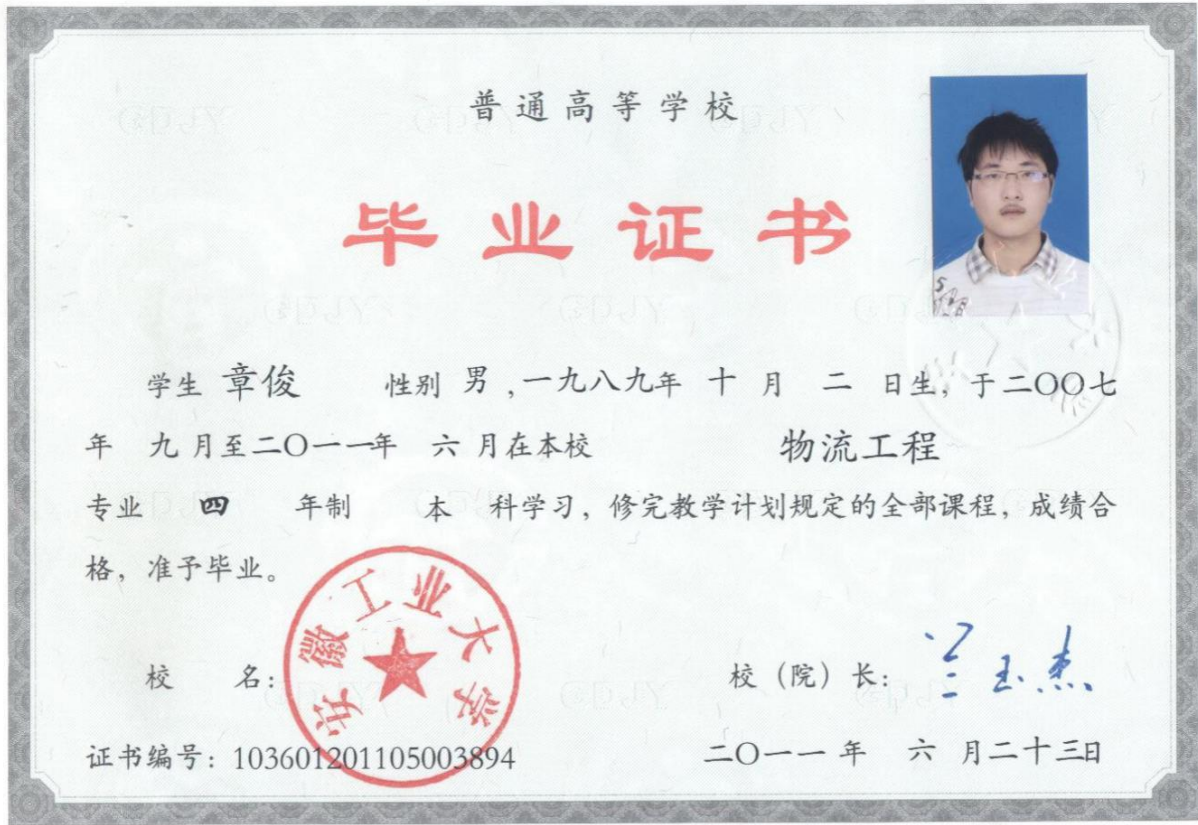 普通高等学校
毕业证书
学生 章俊 性别 男，一九八九年 十 月 二 日生，于二〇〇七
年 九 月至二〇一一年 六 月在本校 物流工程
专业 四 年制 本 科学习，修完教学计划规定的全部课程，成绩合
格，准予毕业。
安徽工业大学
校 名：
校（院）长：兰玉杰
证书编号：103601201105003894
二〇一一年 六 月二十三日